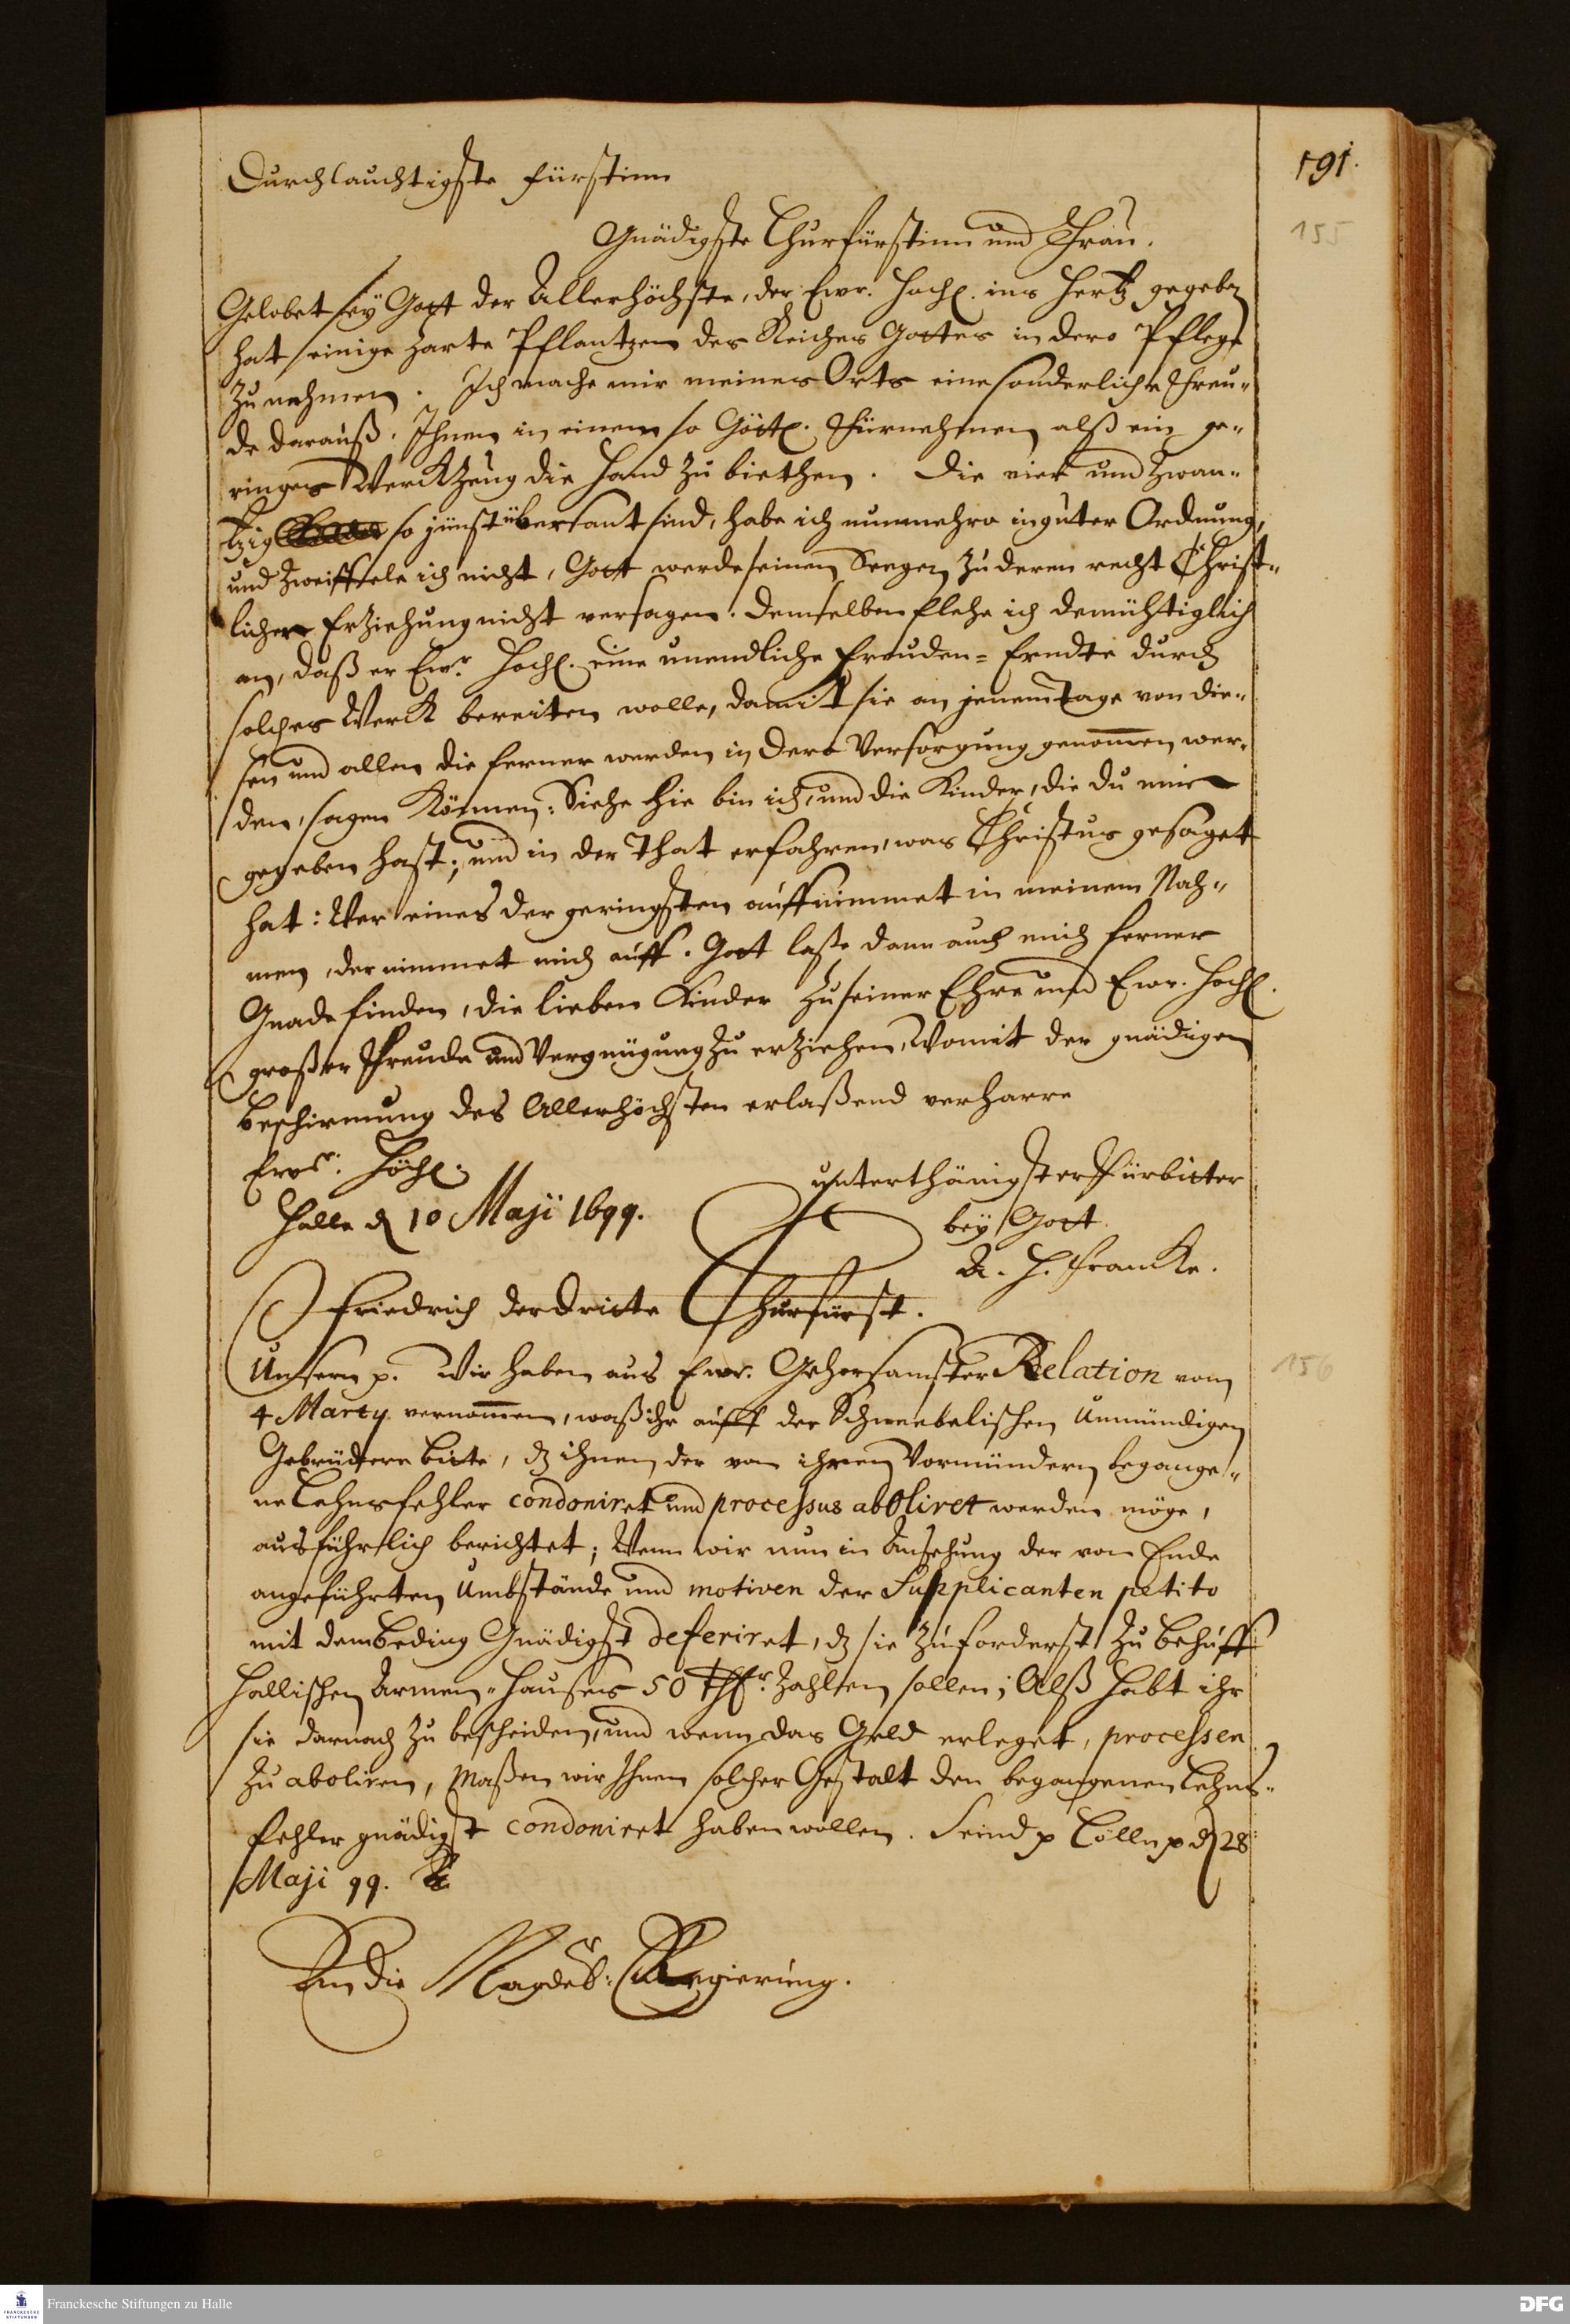 191.
155
Durchlauchtigste Fürstinn
Gnädigste Churfürstinn und Frau.
Gelobet sey Gott der Allerhöchste, der Ewr. Hochl. ins Hertz gegeben
hat einige zarte Pflantzen des Reiches Gottes in dero Pflege
zu nehmen. Ich mache mir meines Orts eine sonderliche Freu-
de darauß, Ihnen in einem so Göttl. Fürnehmen alß ein ge-
ringes Werckzeug die Hand zu biethen. Die vier und zwan-
tzig so jüngst übersant sind, habe ich nunmehro in guter Ordnung,
und zweiffele ich nicht, Gott werde seinen Seegen zu deren recht Christ-
licher Erziehung nicht versagen. Demselben flehe ich demühtiglich
an, daß er Ewr. Hochl. eine unendliche Freuden-Erndte durch
solches Werck bereiten wolle, damit sie an jenem Tage von die-
sen und allen die ferner werden in Dero Versorgung genommen wer-
den, sagen können: Siehe hie bin ich, und die Kinder, die du mir
gegeben hast; und in der That erfahren, was Christus gesaget
hat: Wer eines der geringsten auffnimmet in meinem Nah-
men, der nimmet mich auff. Gott laße dann auch mich ferner
Gnade finden, die lieben Kinder zu seiner Ehre und Ewr. Hochl.
großer Freude und Vergnügung zu erziehen, Womit der gnädigen
Beschirmung des Allerhöchsten erlaßend verharre
Ewr. Hochl.
unterthänigster Fürbitter
Halle d 10 Maji 1699.
bey Gott
A. H. Francke.
Friedrich der Dritte Churfürst.
156
Unsern p. Wir haben aus Ewr. Gehorsamster Relation vom
4 Marty vernommen, waß ihr auff der Unmündigen
Gebrüdere bitte, dz ihnen der von ihren Vormündern begange-
ne Lehnsfehler condoniret und processus aboliret werden möge,
ausführlich berichtet; Wenn wir nun in Ansehung der von Ende
angeführten Umbstände und motiven der Supplicanten petito
mit dem beding Gnädigst deferiret, dz sie zuforderst zu behuff
Hallischen Armen-Hauses 50 Thlr. zahlen sollen; Alß habt ihr
sie darnach zu bescheiden, und wenn das Geld erleget, processen
zu aboliren, Maßen wir Ihnen solcher Gestalt den begangenen Lehns-
fehler gnädigst condoniret haben wollen. Seind p Cölln p d 28
Maji 99.
An die Magdeb: Regierung.
Franckesche Stiftungen zu Halle
FRANCKESCHE STIFTUNGEN
DFG